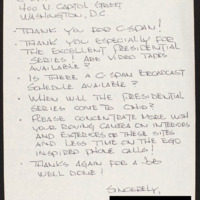 400 N. CAPITOL STREET
WASHINGTON, D.C.
• THANK YOU FOR C-SPAN!
• THANK YOU ESPECIALLY FOR
THE EXCELLENT PRESIDENTIAL
SERIES! ARE VIDEO TAPES
AVAILABLE?
• IS THERE A C-SPAN BROADCAST
SCHEDULE AVAILABLE?
• WHEN WILL THE PRESIDENTIAL
SERIES COME TO OHIO?
• PLEASE CONCENTRATE MORE WITH
YOUR ROVING CAMERA ON INTERIORS
AND EXTERIORS OF THESE SITES
AND LESS TIME ON THE EGO
INSPIRED PHONE CALLS!
• THANKS AGAIN FOR A JOB
WELL DONE!
SINCERELY,